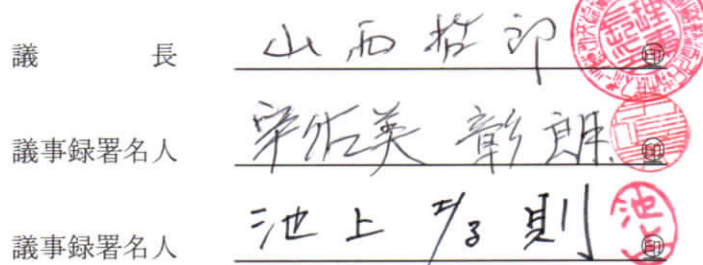 議長 山西哲郎 ㊞
議事録署名人 宇佐美彰朗 ㊞
議事録署名人 池上 則 ㊞
池上